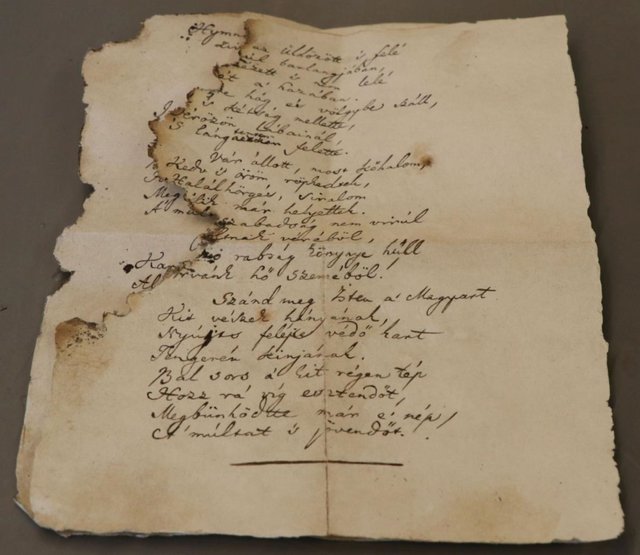 az üldözött s felé
barlangjában,
nézett s nem lelé
a hazában.
hág, és völgybe száll,
s kétség mellette,
lábainál,
S felette.
Vár állott, most kőhalom,
Kedv s öröm röpkedtek,
Halálhörgés, siralom
már helyettek.
szabadság nem virúl
véréből,
rabság könnye hull
hő szeméből!
Szánd meg Isten a' Magyart
Kit vészek hányának,
Nyújts feléje védő kart
Tengerén kínjának.
Bal sors a' kit régen tép
Hozz rá víg esztendőt,
Megbűnhödte már e' nép
A' múltat s jövendőt!